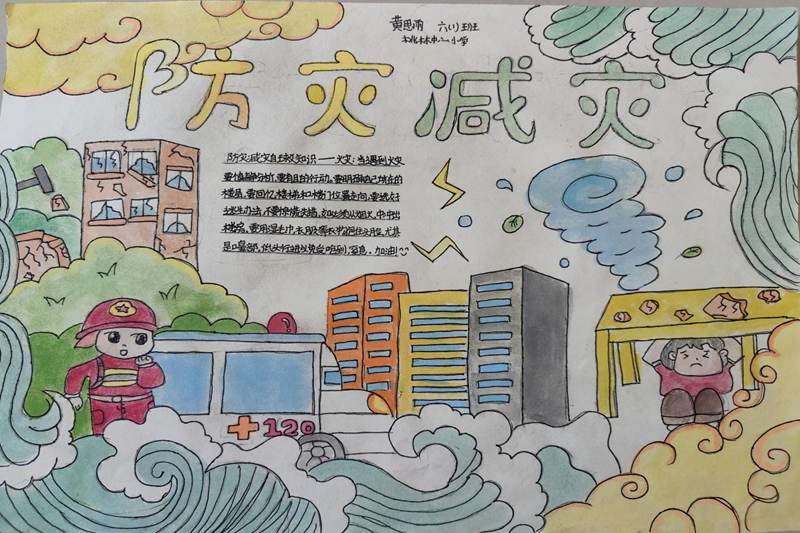 黄思雨 六(1)班
桃林中心小学
防灾减灾
防灾减灾自救知识——火灾:当遇到火灾
要慎静分析,要有目的行动。要明确自己所在的
楼层,要回忆楼梯和楼门位置走向,要选好
逃生办法,不要惊慌失措。如必须从烟火中冲出
楼房,要用湿毛巾、衣服等
包住头脸,尤其
是口鼻部,低头行进以免受呛到、窒息,加油!
120